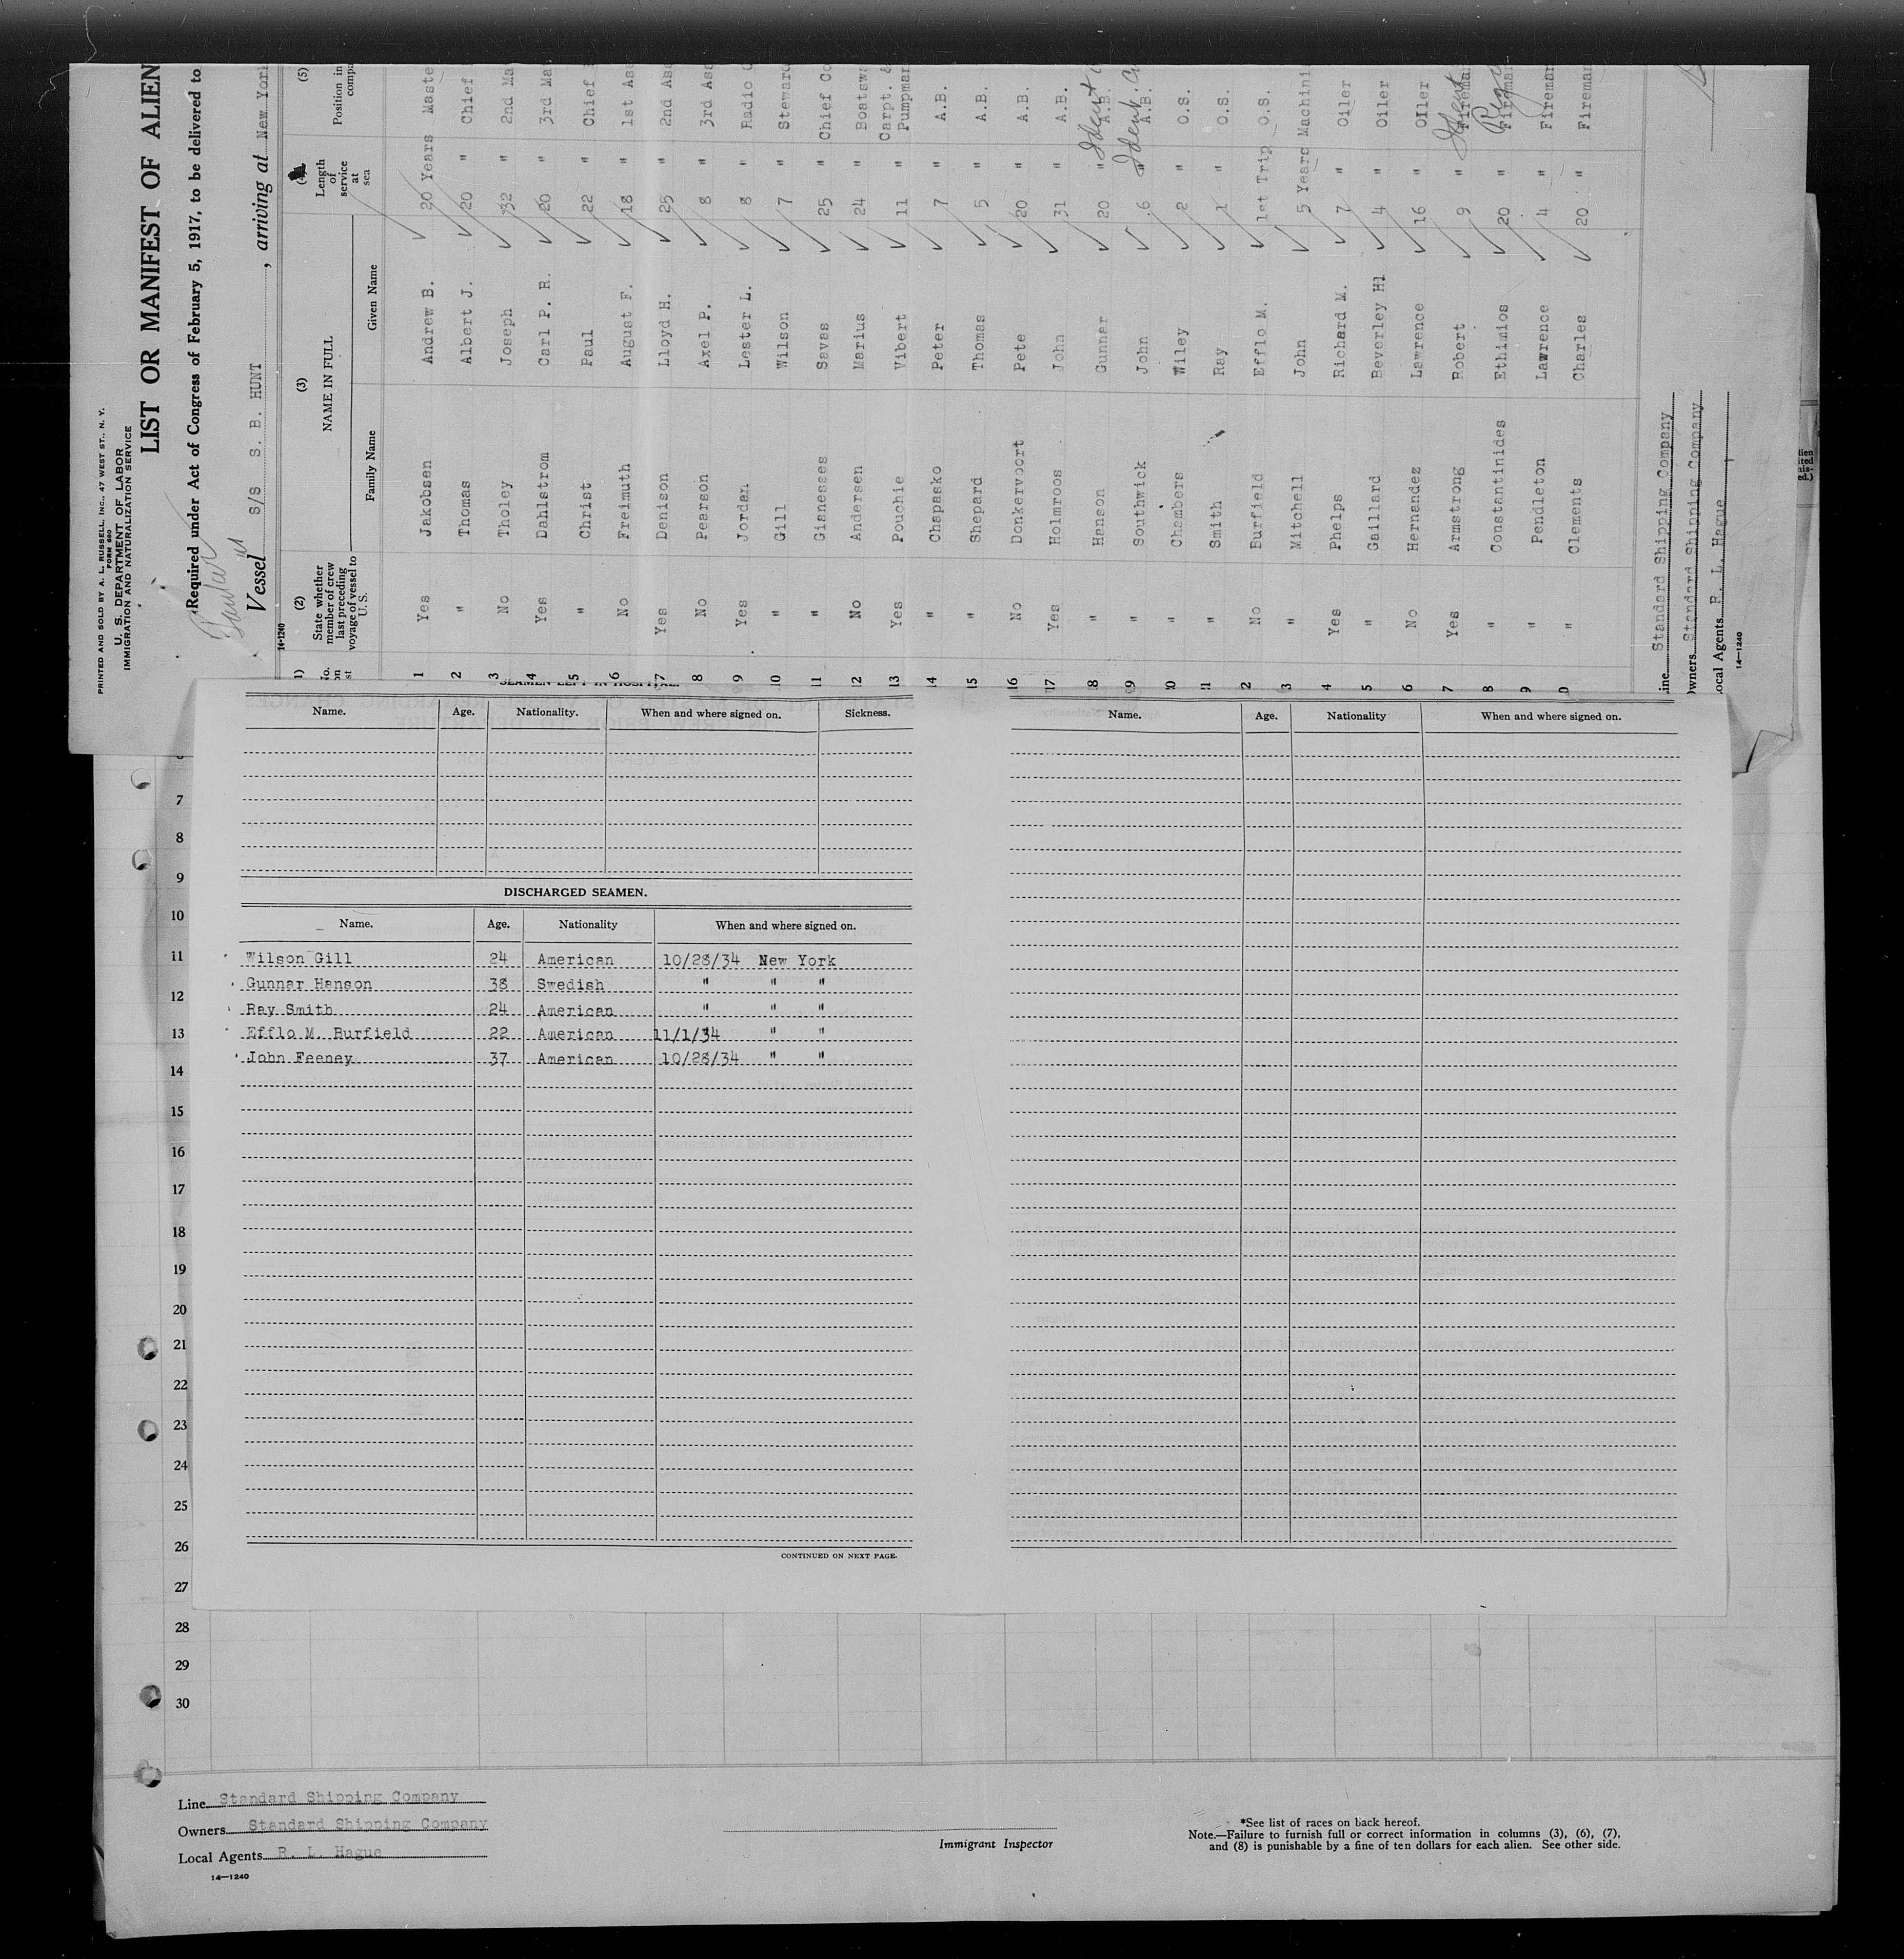 PRINTED AND SOLD BY A. L. RUSSELL, INC., 47 WEST ST., N. Y.
FORM 680
U. S. DEPARTMENT OF LABOR
IMMIGRATION AND NATURALIZATION SERVICE
LIST OR MANIFEST OF ALIEN
Required under Act of Congress of February 5, 1917, to be delivered to
Vessel S/S S. B. HUNT, arriving at New York
14-1240
(2) (3) (5)
State whether member of crew last preceding voyage of vessel to U.S. NAME IN FULL Length of service at sea Position in
Family Name Given Name
1 Yes Jakobsen Andrew B. 20 Years Maste
2 " Thomas Albert J. 20 " Chief
3 No Tholey Joseph 32 " 2nd Ma
4 Yes Dahlstrom Carl P. R. 20 " 3rd Ma
5 " Christ Paul 22 " Chief
6 No Freimuth August F. 18 " 1st Ass
7 Yes Denison Lloyd H. 25 " 2nd Ass
8 No Pearson Axel P. 8 " 3rd Ass
9 Yes Jordan Lester L. 8 " Radio
10 " Gill Wilson 7 " Steward
11 " Gianesses Savas 25 " Chief Co
12 No Andersen Marius 24 " Boatswa
13 Yes Pouchie Vibert 11 " Carpt. & Pumpman
14 " Chapasko Peter 7 " A.B.
15 " Shepard Thomas 5 " A.B.
16 No Donkervoort Pete 20 " A.B.
17 Yes Holmroos John 31 " A.B.
18 " Hanson Gunnar 20 " A.B.
19 " Southwick John 6 " A.B.
20 " Chambers Wiley 2 " O.S.
21 " Smith Ray 1 " O.S.
2 No Burfield Efflo M. 1st Trip O.S.
3 " Mitchell John 5 Years Machini
4 Yes Phelps Richard M. 7 " Oiler
5 " Gaillard Beverley Hl 4 " Oiler
6 No Hernandez Lawrence 16 " OIler
7 Yes Armstrong Robert 9 " Fireman
8 " Constantinides Ethimios 20 " Fireman
9 " Pendleton Lawrence 4 " Fireman
0 " Clements Charles 20 " Fireman
Line Standard Shipping Company
Owners Standard Shipping Company
Local Agents R. L. Hague
14—1240
SEAMEN LEFT IN HOSPITAL.
Name. Age. Nationality. When and where signed on. Sickness.
Name. Age. Nationality When and where signed on.
DISCHARGED SEAMEN.
Name. Age. Nationality When and where signed on.
Wilson Gill 24 American 10/28/34 New York
Gunnar Hanson 38 Swedish " " "
Ray Smith 24 American " " "
Efflo M. Burfield 22 American 11/1/34 " "
John Feeney 37 American 10/28/34 " "
CONTINUED ON NEXT PAGE.
7
8
9
10
11
12
13
14
15
16
17
18
19
20
21
22
23
24
25
26
27
28
29
30
Line Standard Shipping Company
Owners Standard Shipping Company
Local Agents R. L. Hague
14—1240
Immigrant Inspector
*See list of races on back hereof.
Note.—Failure to furnish full or correct information in columns (3), (6), (7),
and (8) is punishable by a fine of ten dollars for each alien. See other side.